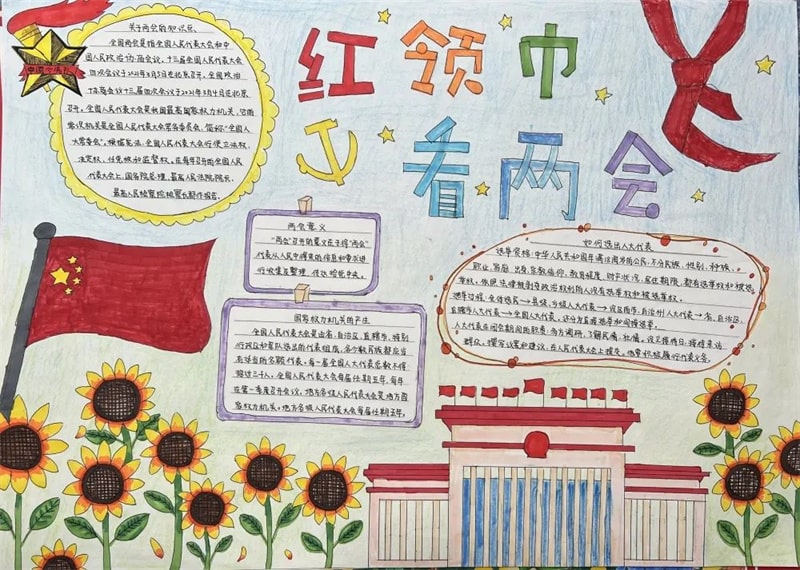 红领巾
看两会
关于两会的知识点
全国两会是指全国人民代表大会和中
国人民政治协商会议，十三届全国人民代表大会
四次会议于2021年3月5日在北京召开，全国政协
十三届会议十三届四次会议于2021年3月4日在北京
召开。全国人民代表大会是我国最高国家权力机关，它的
常设机关是全国人民代表大会常务委员会，简称"全国人
大常委会"。根据宪法，全国人民代表大会行使立法权、
决定权、任免权和监督权。在每年召开的全国人民
代表大会上，国务院总理、最高人民法院院长、
最高人民检察院检察长都作报告。
两会意义
"两会"召开的意义在于将"两会"
代表从人民中得来的信息和要求进
行收集及整理，传达给党中央。
国家权力机关的产生
全国人民代表大会是由省、自治区、直辖市、特别
行政区和军队选出的代表组成，各少数民族都应当
有适当的名额代表。每一届全国人大代表总数不得
超过三千人，全国人民代表大会每届任期五年，每年
在第一季度召开会议，地方各级人民代表大会是地方国
家权力机关。地方各级人民代表大会每届任期五年。
如何选出人大代表
选举资格：中华人民共和国年满18周岁的公民，不分民族、性别、种族、
职业、家庭出身、宗教信仰、教育程度、财产状况、居住期限，都有选举权和被选
举权。依照法律被剥夺政治权利的人没有选举权和被选举权。
选举过程：全体选民→县级、乡级人大代表→设区的市、自治州人大代表→省、自治区、
直辖市人大代表→全国人大代表，还分为直接选举和间接选举。
人大代表在闭会期间的职责：务力调研，了解民情、社情，设立接待日，接待来访
群众，撰写议案和建议，在人民代表大会上提交。